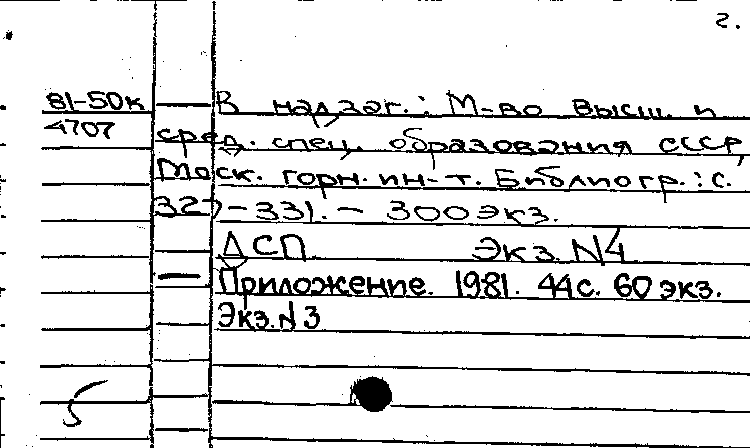 2.
81-50к В надзаг.: М-во высш. и
4707 сред. спец. образования СССР,
Моск. горн. ин-т. Библиогр.: с.
327-331. - 300 экз.
ДСП Экз. N4
Приложение. 1981. 44с. 60 экз.
Экз. N3
5